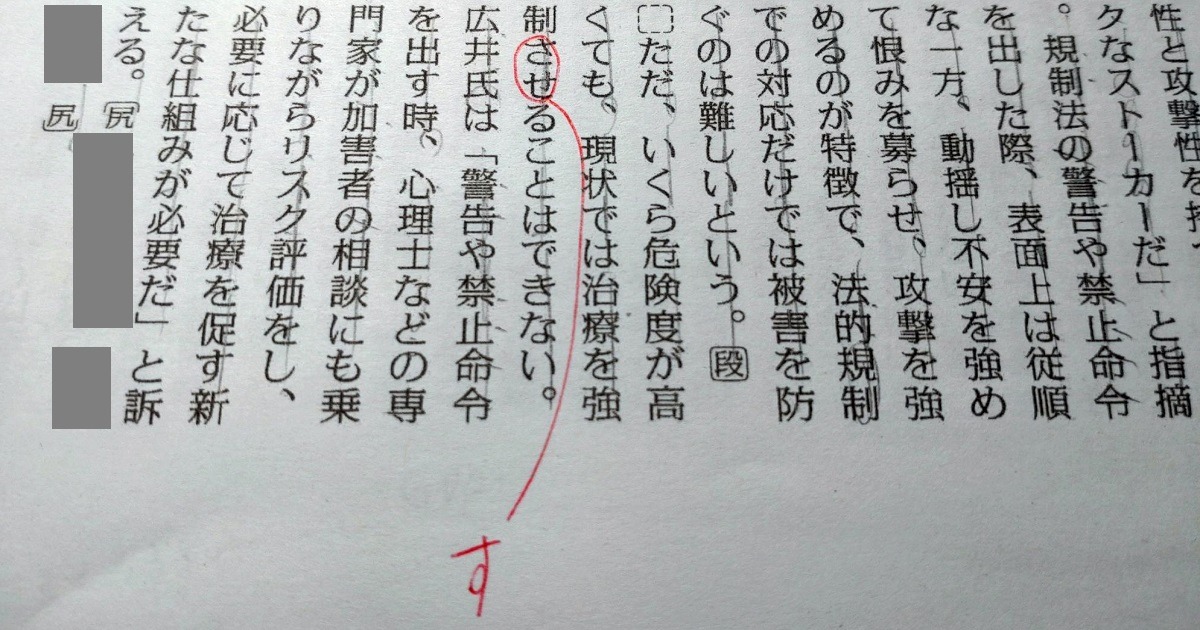 性と攻撃性を
クなストーカーだ」と指摘
。規制法の警告や禁止命令
を出した際、表面上は従順
な一方、動揺し不安を強め
て恨みを募らせ、攻撃を強
めるのが特徴で、法的規制
での対応だけでは被害を防
ぐのは難しいという。段
ただ、いくら危険度が高
くても、現状では治療を強
制させることはできない。
す
広井氏は「警告や禁止命令
を出す時、心理士などの専
門家が加害者の相談にも乗
りながらリスク評価をし、
必要に応じて治療を促す新
たな仕組みが必要だ」と訴
える。尻
尻